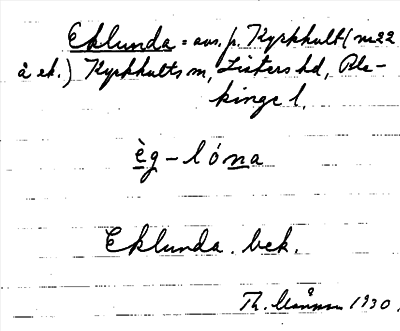 Eklunda = avs. p. Kyrkhult (m 22
å ek.) Kyrkhults sn, Listers hd, Ble-
kinge l.
èg-lóna
Eklunda. bek.
Th. 1930.